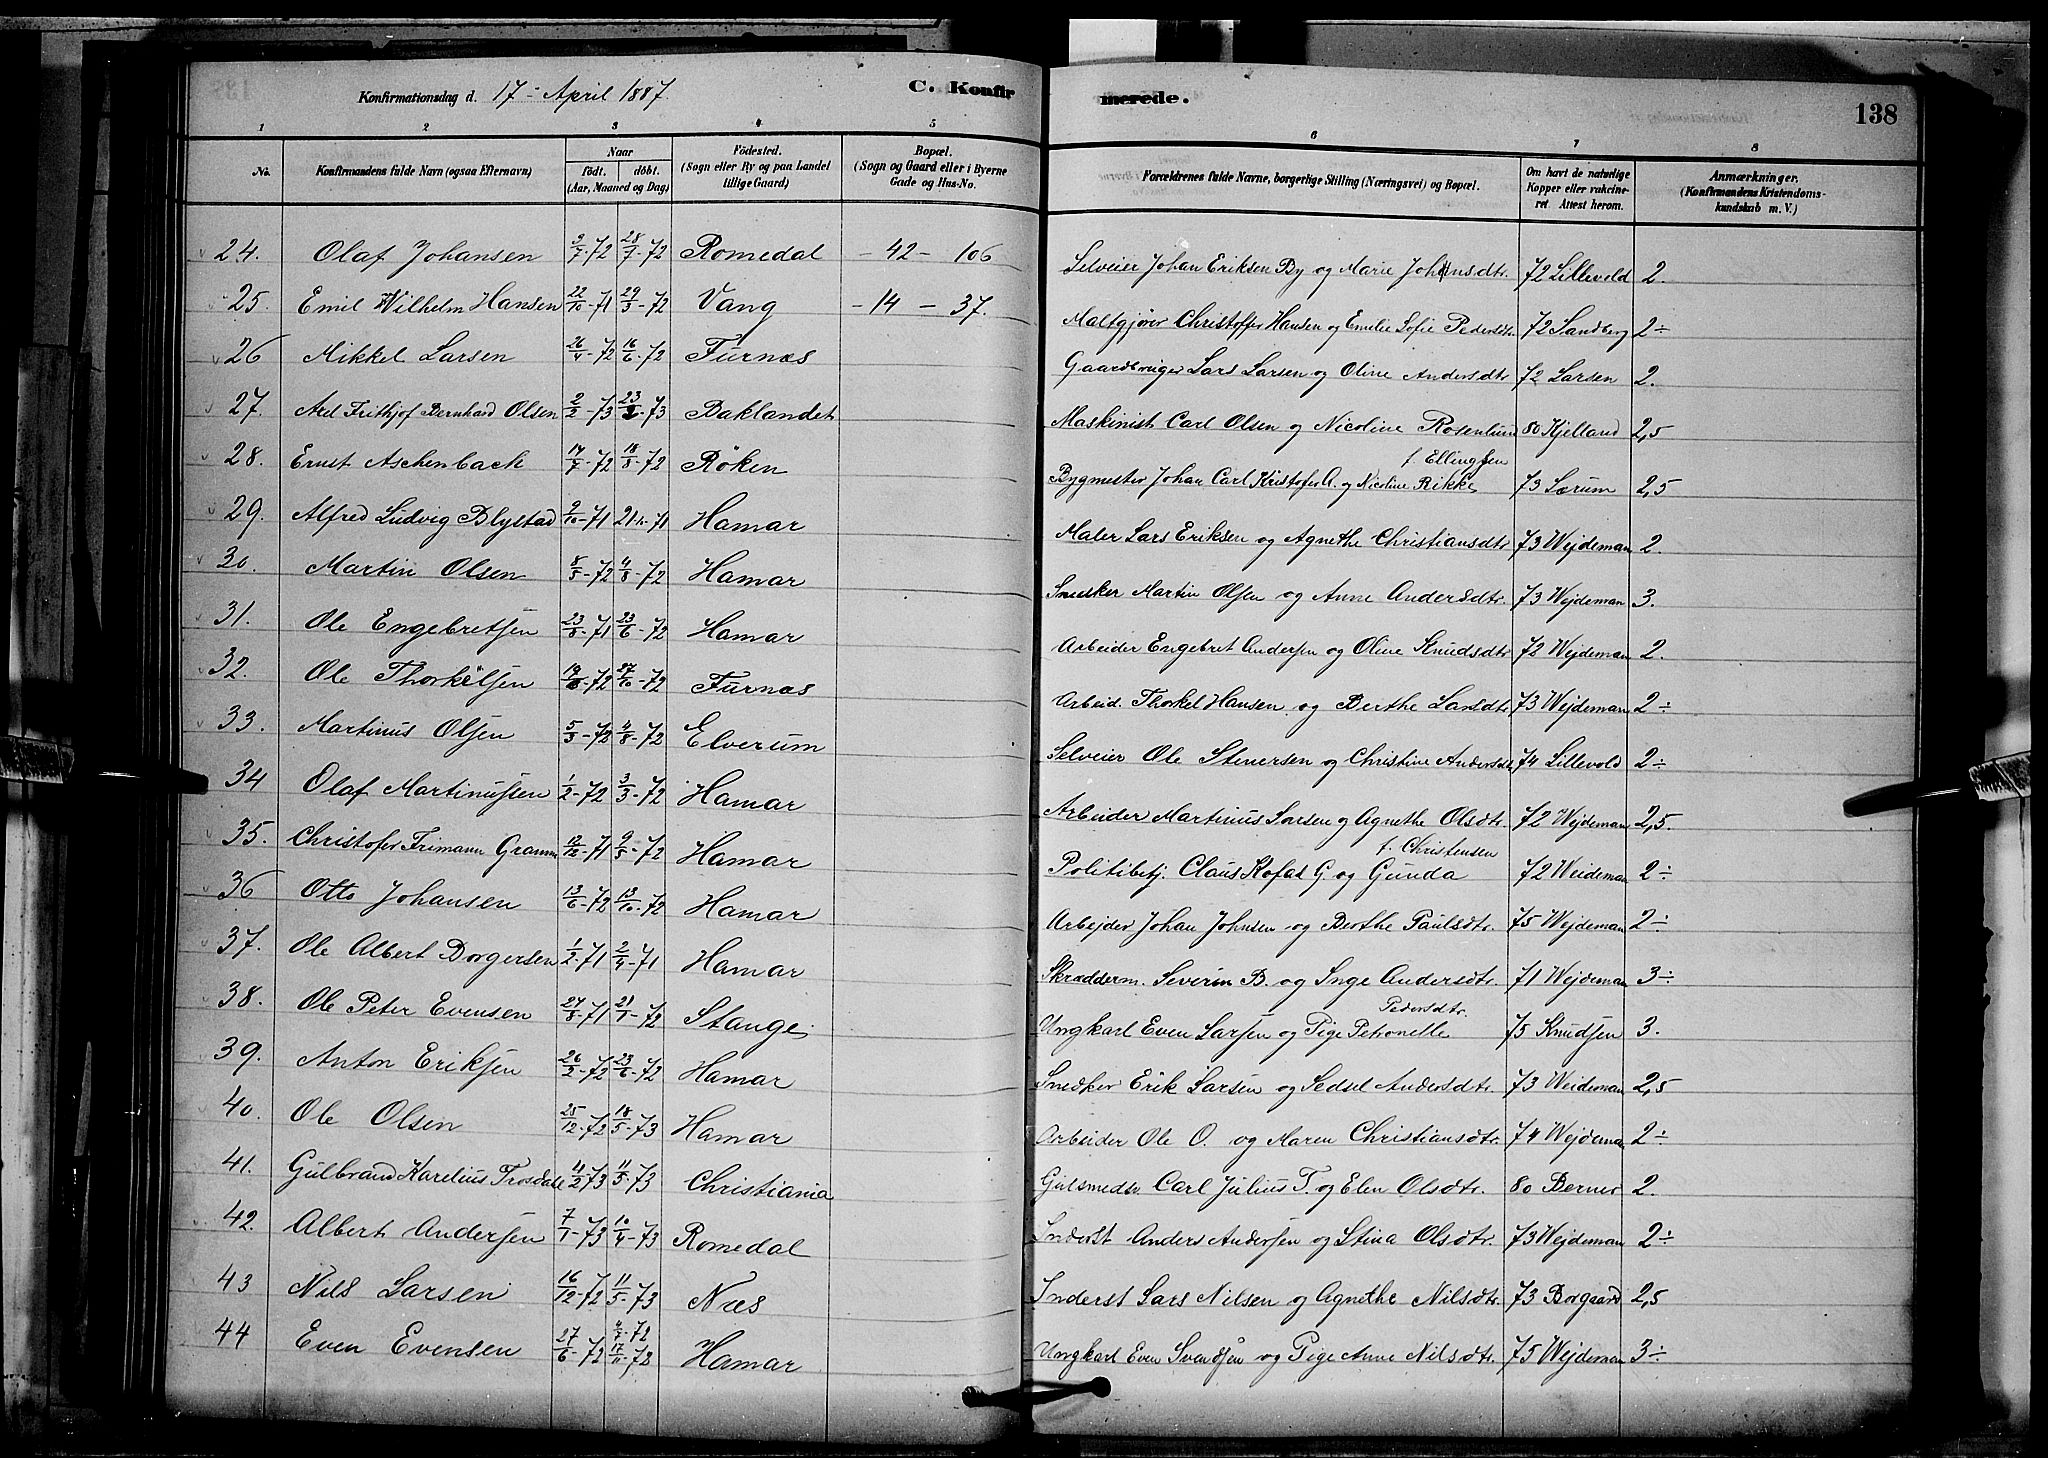 Konfirmationsdag d. 17 - April 1887. C. Konfir merede. 138
1 2 3 4 5 6 7 8
No. Konfirmandens fulde Navn (ogsaa Efternavn) Naar født. døbt. (Aar, Maaned og Dag) Fødested. (Sogn eller By og paa Landet tillige Gaard) Bopæl. (Sogn og Gaard eller i Byerne Gade og Hus-No. Forældrenes fulde Navne, borgerlige Stilling (Næringsvei) og Bopæl. Om havt de naturlige Kopper eller vakcineret. Attest herom. Anmærkninger. (Konfirmandens Kristendomskundskab m. V.)
24. Olaf Johansen 3/7-72 28/7-72 Romedal - 42 - 106 Selveier Johan Eriksen By og Marie Johnsdtr. 72 Lillevold 2.
25. Emil Wilhelm Hansen 22/10-71 29/3-72 Vang - 14 - 37. Maltgjører Christoffer Hansen og Emilie Sofie Pedersdtr. 72 Sandberg 2÷
26 Mikkel Larsen 26/4-72 16/6-72 Furnæs Gaardbruger Lars Larsen og Oline Andersdtr 72 Larsen 2.
27. Axel Frithjof Bernhard Olsen 2/2-73 23/2-73 Baklandet Maskinist Carl Olsen og Nicoline Rosenlund 80 Kjelland 2,5
28. Ernst Aschenbach 14/7-72 18/8-72 Røken Bygmester Johan Carl Kristofer A. og Nicoline Rikke f. Ellingsen 73 Særum 2,5
29. Alfred Ludvig Blystad 9/10-71 21-71 Hamar Maler Lars Eriksen og Agnethe Christiansdtr 73 Wejdeman 2.
30. Martin Olsen 8/5-72 4/8-72 Hamar Snedker Martin Olsen og Anne Andersdtr. 73 Wejdeman 3.
31. Ole Engebretsen 23/8-71 23/6-72 Hamar Arbeider Engebret Andersen og Oline Knudsdtr 72 Wejdeman 2.
32. Ole Thorkelsen 19/8-72 27/10-72 Furnæs Arbeid. Thorkel Hansen og Berthe Larsdtr 73 Wejdeman 2÷
33. Martinus Olsen 5/5-72 4/8-72 Elverum Selveier Ole Stenersen og Christine Andersdtr 74 Lillevold 2÷
34 Olaf Martinussen 1/2-72 3/3-72 Hamar Arbeider Martinus Larsen og Agnethe Olsdtr. 72 Wejdeman 2,5.
35. Christofer Frimann Gramm 12/12-71 9/5-72 Hamar Politibetj. Claus Kofat G. og Gunda f. Christensen 72 Weideman 2÷
36 Otto Johansen 13/6-72 13/10-72 Hamar Arbejder Johan Johnsen og Berthe Paulsdtr. 75 Wejdeman 2÷
37. Ole Albert Borgersen 1/2-71 2/4-71 Hamar Skrædderm. Severin B. og Inge Andersdtr. 71 Wejdeman 3÷
38. Ole Peter Evensen 27/8-71 21/1-72 Stange Ungkarl Even Larsen og Pige Petronelle Pedersdtr. 75 Knudsen 3.
39. Anton Eriksen 26/2-72 23/6-72 Hamar Snedker Erik Larsen og Sedsel Andersdtr. 73 Weideman 2,5
40. Ole Olsen 25/12-72 18/5-73 Hamar Arbeider Ole O. og Maren Christiansdtr. 74 Wejdeman 2÷
41. Gulbrand Karelius Trosdahl 11/2-73 11/5-73 Christiania Gulsmedsv. Carl Julius T. og Elen Olsdtr. 80 Berner 2.
42. Albert Andersen 7/1-73 10/4-73 Romedal Inderst Anders Andersen og Stina Olsdtr. 73 Wejdeman 2÷
43 Nils Larsen 16/12-72 11/5-73 Næs Inderst Lars Nilsen og Agnethe Nilsdtr. 73 Borgaard 2,5
44 Even Evensen 27/6-72 4/7-72 17/11-72 Hamar Ungkarl Even Svendsen og Pige Anne Nilsdtr. 75 Wejdeman 3÷